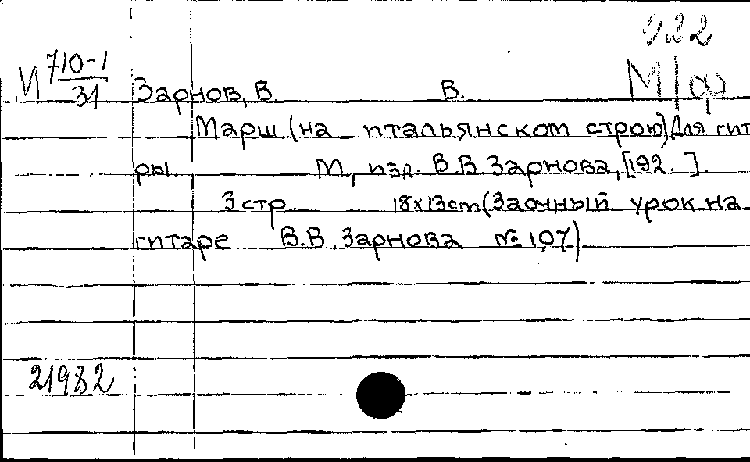 922
И 710-1
31
М/ф
Зарнов, В. В.
Марш (на итальянском строю) Для гита
ры. М., изд. В.В. Зарнова, [192. ].
3 стр 18х13cm (Заочный урок на
гитаре В.В. Зарнова № 107)
21982